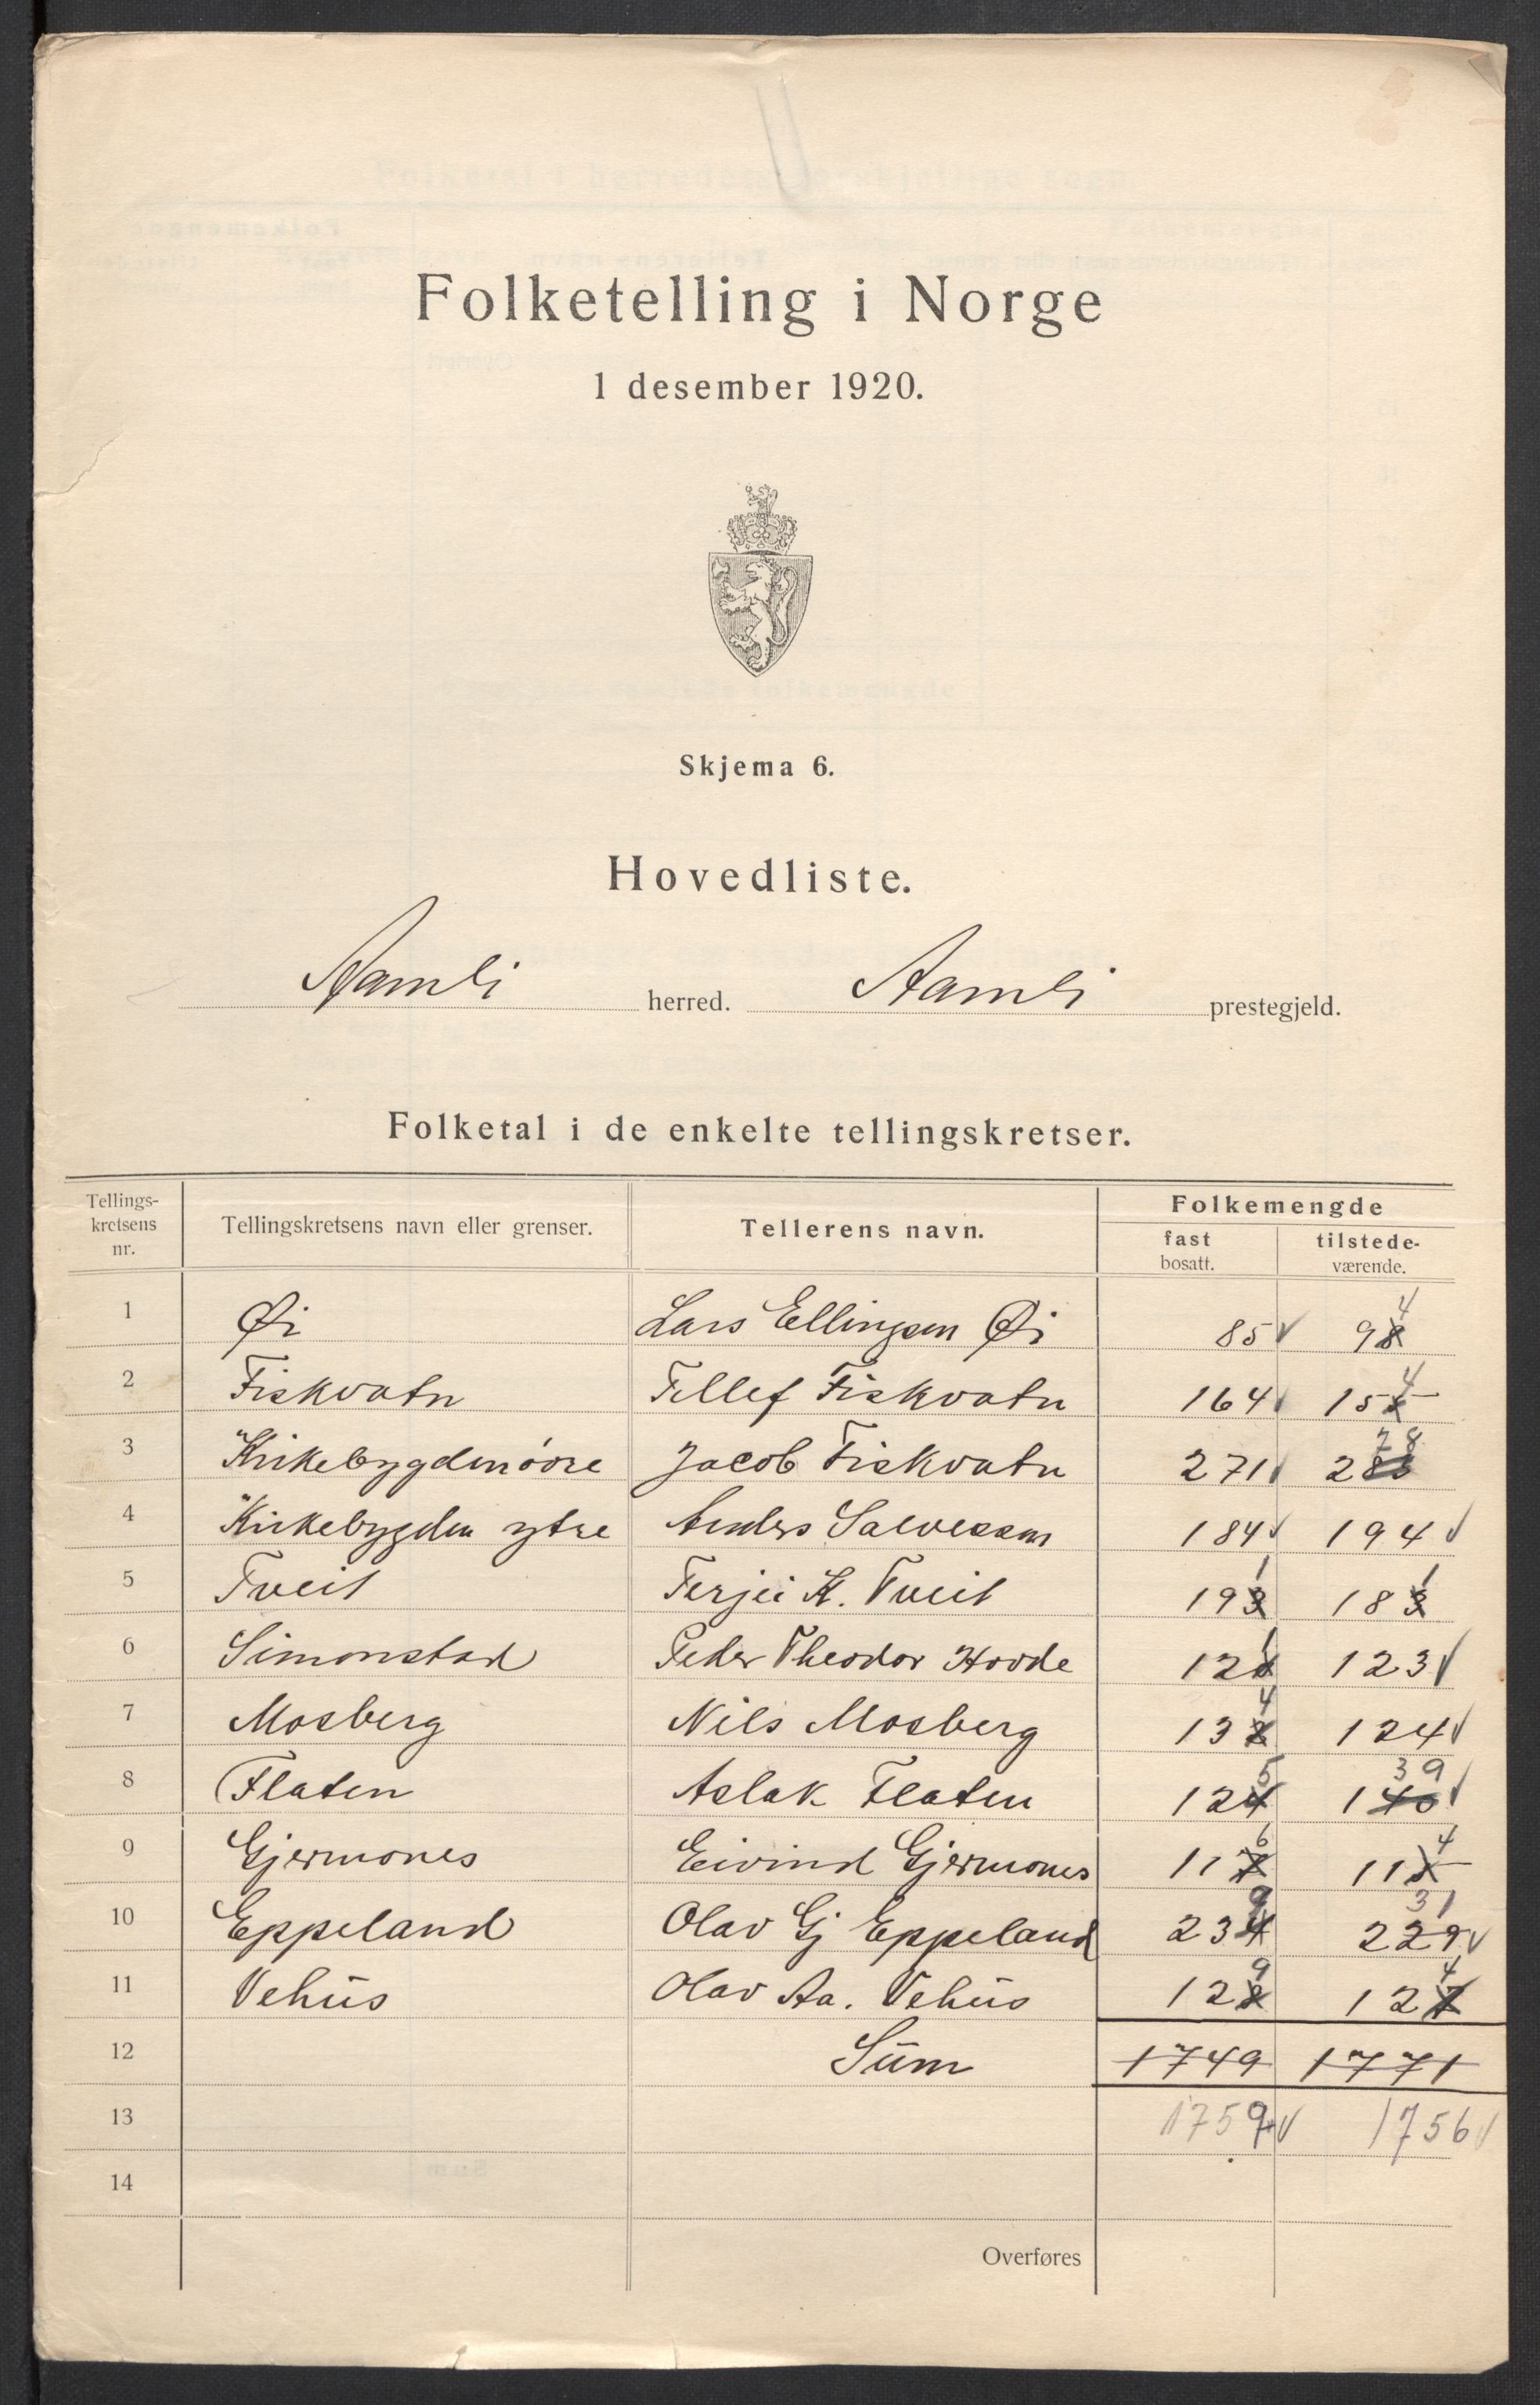 Folketelling i Norge
1 desember 1920.
Skjema 6.
Hovedliste.
Aamli herred. Aamli prestegjeld.
Folketal i de enkelte tellingskretser.
Tellings-
kretsens
nr.
Tellingskretsens navn eller grenser.
Tellerens navn.
Folkemengde
fast
bosatt.
tilstede-
værende.
1 Øi Lars Ellingsen Øi 85 94
2 Fiskvatn Tellef Fiskvatn 164 154
3 Kirkebygden øvre Jacob Fiskvatn 271 278
4 Kirkebygden ytre Anders Salvesen 184 194
5 Tveit Terjei K. Tveit 191 181
6 Simonstad Peder Theodor Hovde 121 123
7 Mosberg Nils Mosberg 134 124
8 Flaten Aslak Flaten 125 139
9 Gjermones Eivind Gjermones 116 114
10 Eppeland Olav Gj Eppeland 239 231
11 Vehüs Olav Aa. Vehüs 129 124
12 Süm 1749 1771
13 1759 1756
14
Overføres